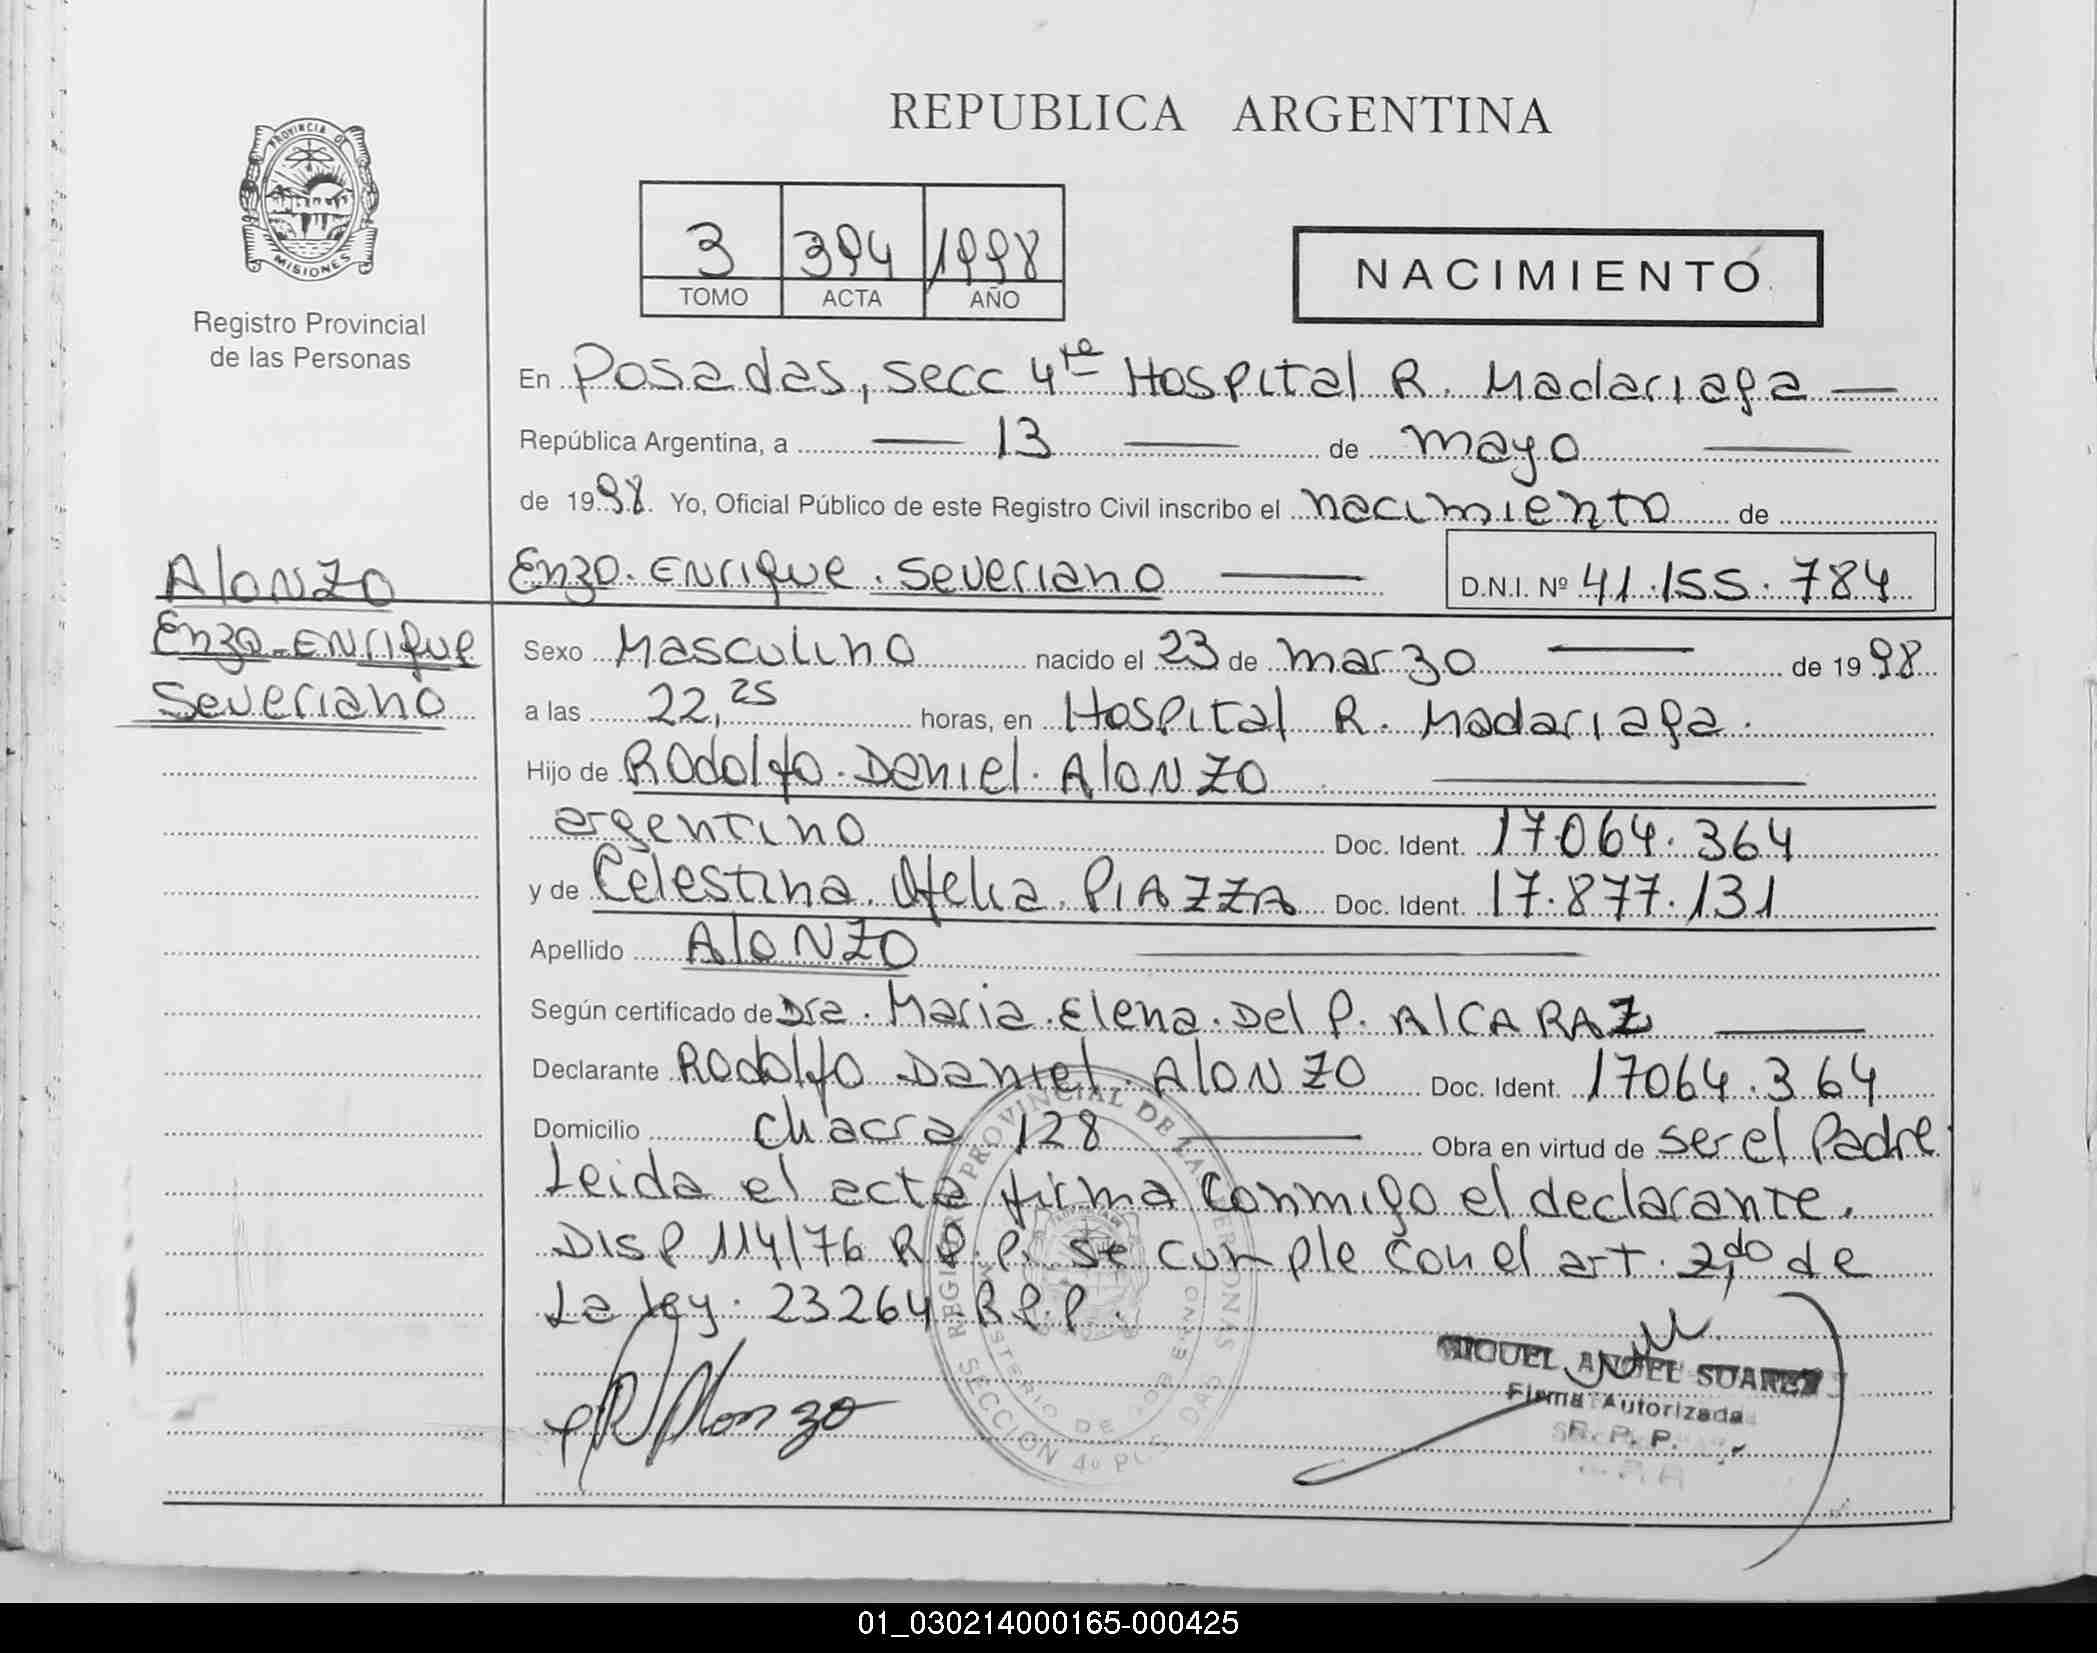 REPUBLICA ARGENTINA
PROVINCIA DE
MISIONES
Registro Provincial
de las Personas
3 394 1998
TOMO ACTA AÑO
NACIMIENTO
En Posadas, secc 4ta Hospital R. Madariaga —
República Argentina, a — 13 — de mayo —
de 1998. Yo, Oficial Público de este Registro Civil inscribo el nacimiento de
Enzo. Enrique. Severiano — D.N.I. Nº 41.155.784
Alonzo
Enzo-Enrique
Severiano
Sexo Masculino nacido el 23 de marzo — de 1998
a las 22,25 horas, en Hospital R. Madariaga.
Hijo de Rodolfo. Daniel. Alonzo —
argentino Doc. Ident. 17064.364
y de Celestina. Ofelia. PIAZZA Doc. Ident. 17.877.131
Apellido Alonzo —
Según certificado de Dra. Maria. Elena. Del P. AlCARAZ —
Declarante Rodolfo Daniel. Alonzo Doc. Ident. 17064.364
Domicilio Chacra 128 — Obra en virtud de ser el Padre.
Leida el acta firma conmigo el declarante.
Disp 114/76 R.P.P. se cumple con el art. 2do de
La ley. 23264 R.P.P.
REGISTRO PROVINCIAL DE LAS PERSONAS
MINISTERIO DE GOBIERNO
SECCION 4º
R Alonzo
MIGUEL ANGEL SUAREZ
Firma Autorizada
R. P. P.
01_030214000165-000425